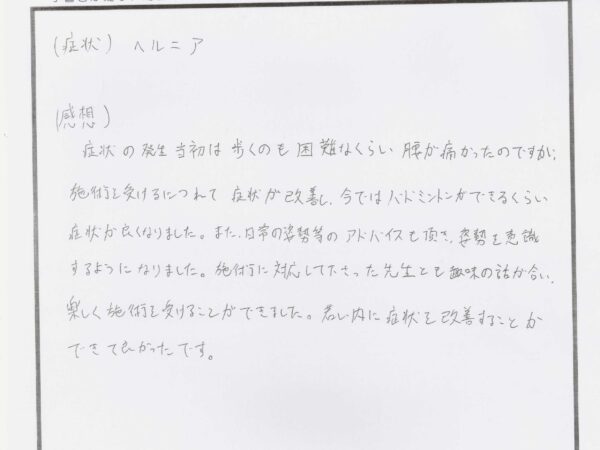 (症状) ヘルニア
(感想)
症状の発生当初は歩くのも困難なくらい腰が痛かったのですが、
施術を受けるにつれて症状が改善し、今ではバドミントンができるくらい
症状が良くなりました。また、日常の姿勢等のアドバイスも頂き、姿勢を意識
するようになりました。施術に対応して下さった先生とも趣味の話が合い、
楽しく施術を受けることができました。若い内に症状を改善することが
できて良かったです。